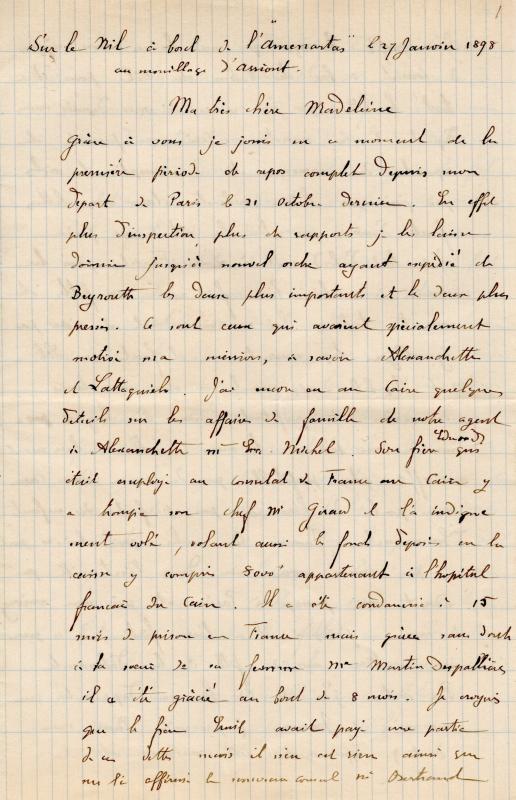 1
Sur le Nil à bord de l'"Amenartas" le 27 Janvier 1898
au mouillage d'Assiout.
Ma très chère Madeleine
Grâce à vous je jouis en ce moment de la
première période de repos complet depuis mon
départ de Paris le 21 octobre dernier. En effet
plus d'inspection, plus de rapports je les laisse
dormir jusqu'à nouvel ordre ayant expédié de
Beyrouth les deux plus importants et les deux plus
pressés. Ce sont ceux qui avaient spécialement
motivé ma mission, à savoir Alexandrette
et Lattaquieh. J'ai encore eu au Caire quelques
détails sur les affaires de famille de notre agent
à Alexandrette Mr Em. Michel. Son frère Edmond qui
était employé au consulat de France au Caire y
a trompé son chef Mr Giraud et l'a indigne
ment volé, volant aussi les fonds déposés en la
caisse y compris appartenant à l'hôpital
français du Caire. Il a été condamné à 15
mois de prison en France mais grâce sans doute
à la soeur de sa femme Me Martin Despallières
il a été gracié au bout de 8 mois. Je croyais
que le frère Emile avait payé une partie
de ces dettes mais il n'en est rien ainsi que
me l'a affirmé le nouveau consul Mr Bertrand